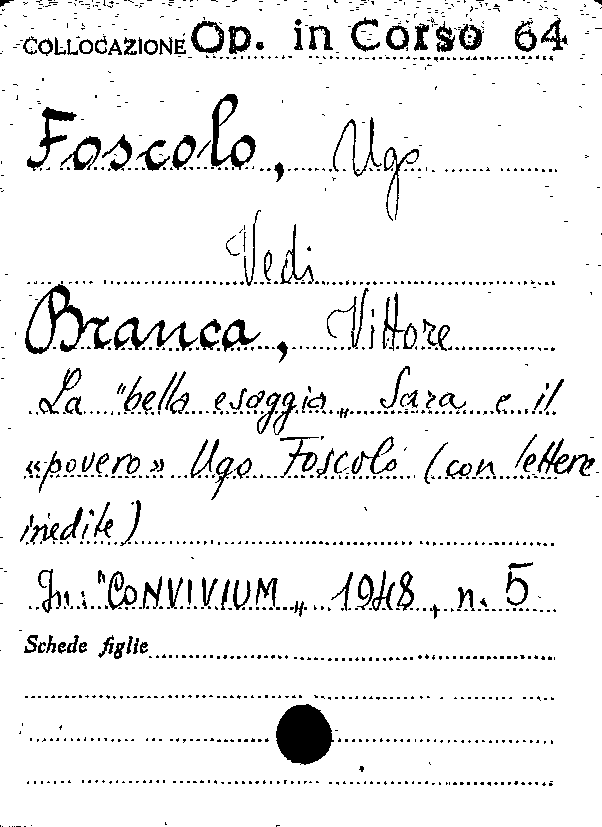 COLLOCAZIONE Op. in Corso 64
Foscolo, Ugo
Vedi
Branca, Vittore
La "bella esaggia„ Sara e il
«povero» Ugo Foscolo (con lettere
inedite)
In: "CONVIVIUM„ 1948, n. 5
Schede figlie